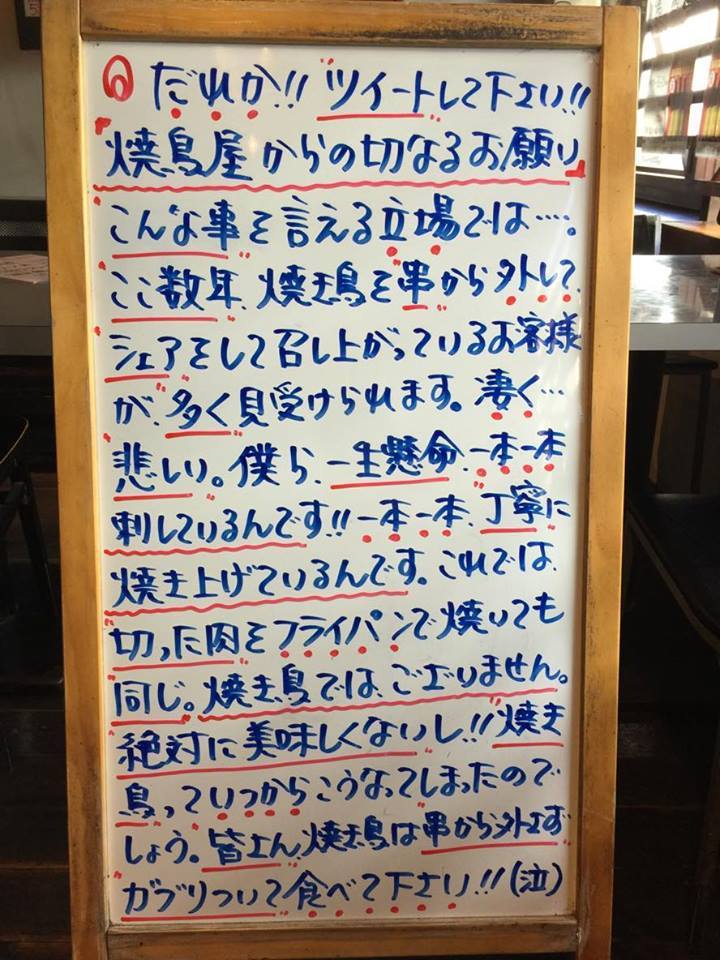 だれか!! ツイートして下さい!!
焼鳥屋からの切なるお願い
こんな事を言える立場では…。
ここ数年、焼き鳥を串から外して、
シェアをして召し上がっているお客様
が、多く見受けられます。凄く…
悲しい。僕ら、一生懸命、一本一本
刺しているんです!! 一本一本、丁寧に
焼き上げているんです。これでは、
切った肉をフライパンで焼いても
同じ。焼き鳥では、ございません。
絶対に美味しくないし!! 焼き
鳥っていつからこうなってしまったので
しょう。皆さん、焼き鳥は串から外さず
ガブリついて食べて下さい!!(泣)